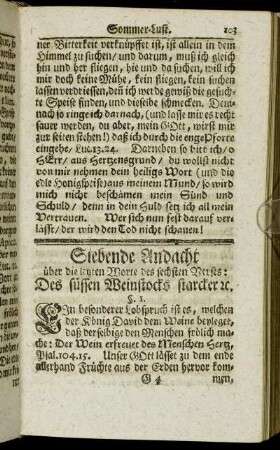 Sommer-Lust. 103
ner Bitterkeit verknüpffet ist, ist allein in dem
Himmel zu suchen/ und darum, muß ich gleich
hin und her fliegen, hie und da suchen, will ich
mir doch keine Mühe, kein fliegen, kein suchen
lassen verdriessen, deñ ich werde gewiß die gesuch-
te Speise finden, und dieselbe schmecken. Dem-
nach so ringe ich darnach, (und lasse mir es recht
sauer werden, du aber, mein GOtt, wirst mir
zur seiten stehen!) daß ich durch die enge Pforte
eingehe, Luc. 13.24. Darneben so bitt ich/ o
HErr/ aus Hertzensgrund/ du wollst nicht
von mir nehmen dein heiligs Wort (und die
edle Honigspeise) aus meinem Mund/ so wird
mich nicht beschämen mein Sünd und
Schuld/ denn in dein Huld setz ich all mein
Vertrauen. Wer sich nun fest darauf ver-
lässet/ der wird den Tod nicht schauen!
Siebende Andacht
über die letzten Worte des sechsten Verses:
Des süssen Weinstocks starcker ꝛc.
§. 1.
EIn besonderer Lobspruch ist es, welchen
der König David dem Weine beyleget,
daß derselbige den Menschen frölich ma-
che: Der Wein erfreuet des Menschen Hertz,
Psal. 104.15. Unser GOtt lässet zu dem ende
allerhand Früchte aus der Erden hervor kom-
G 4 men,